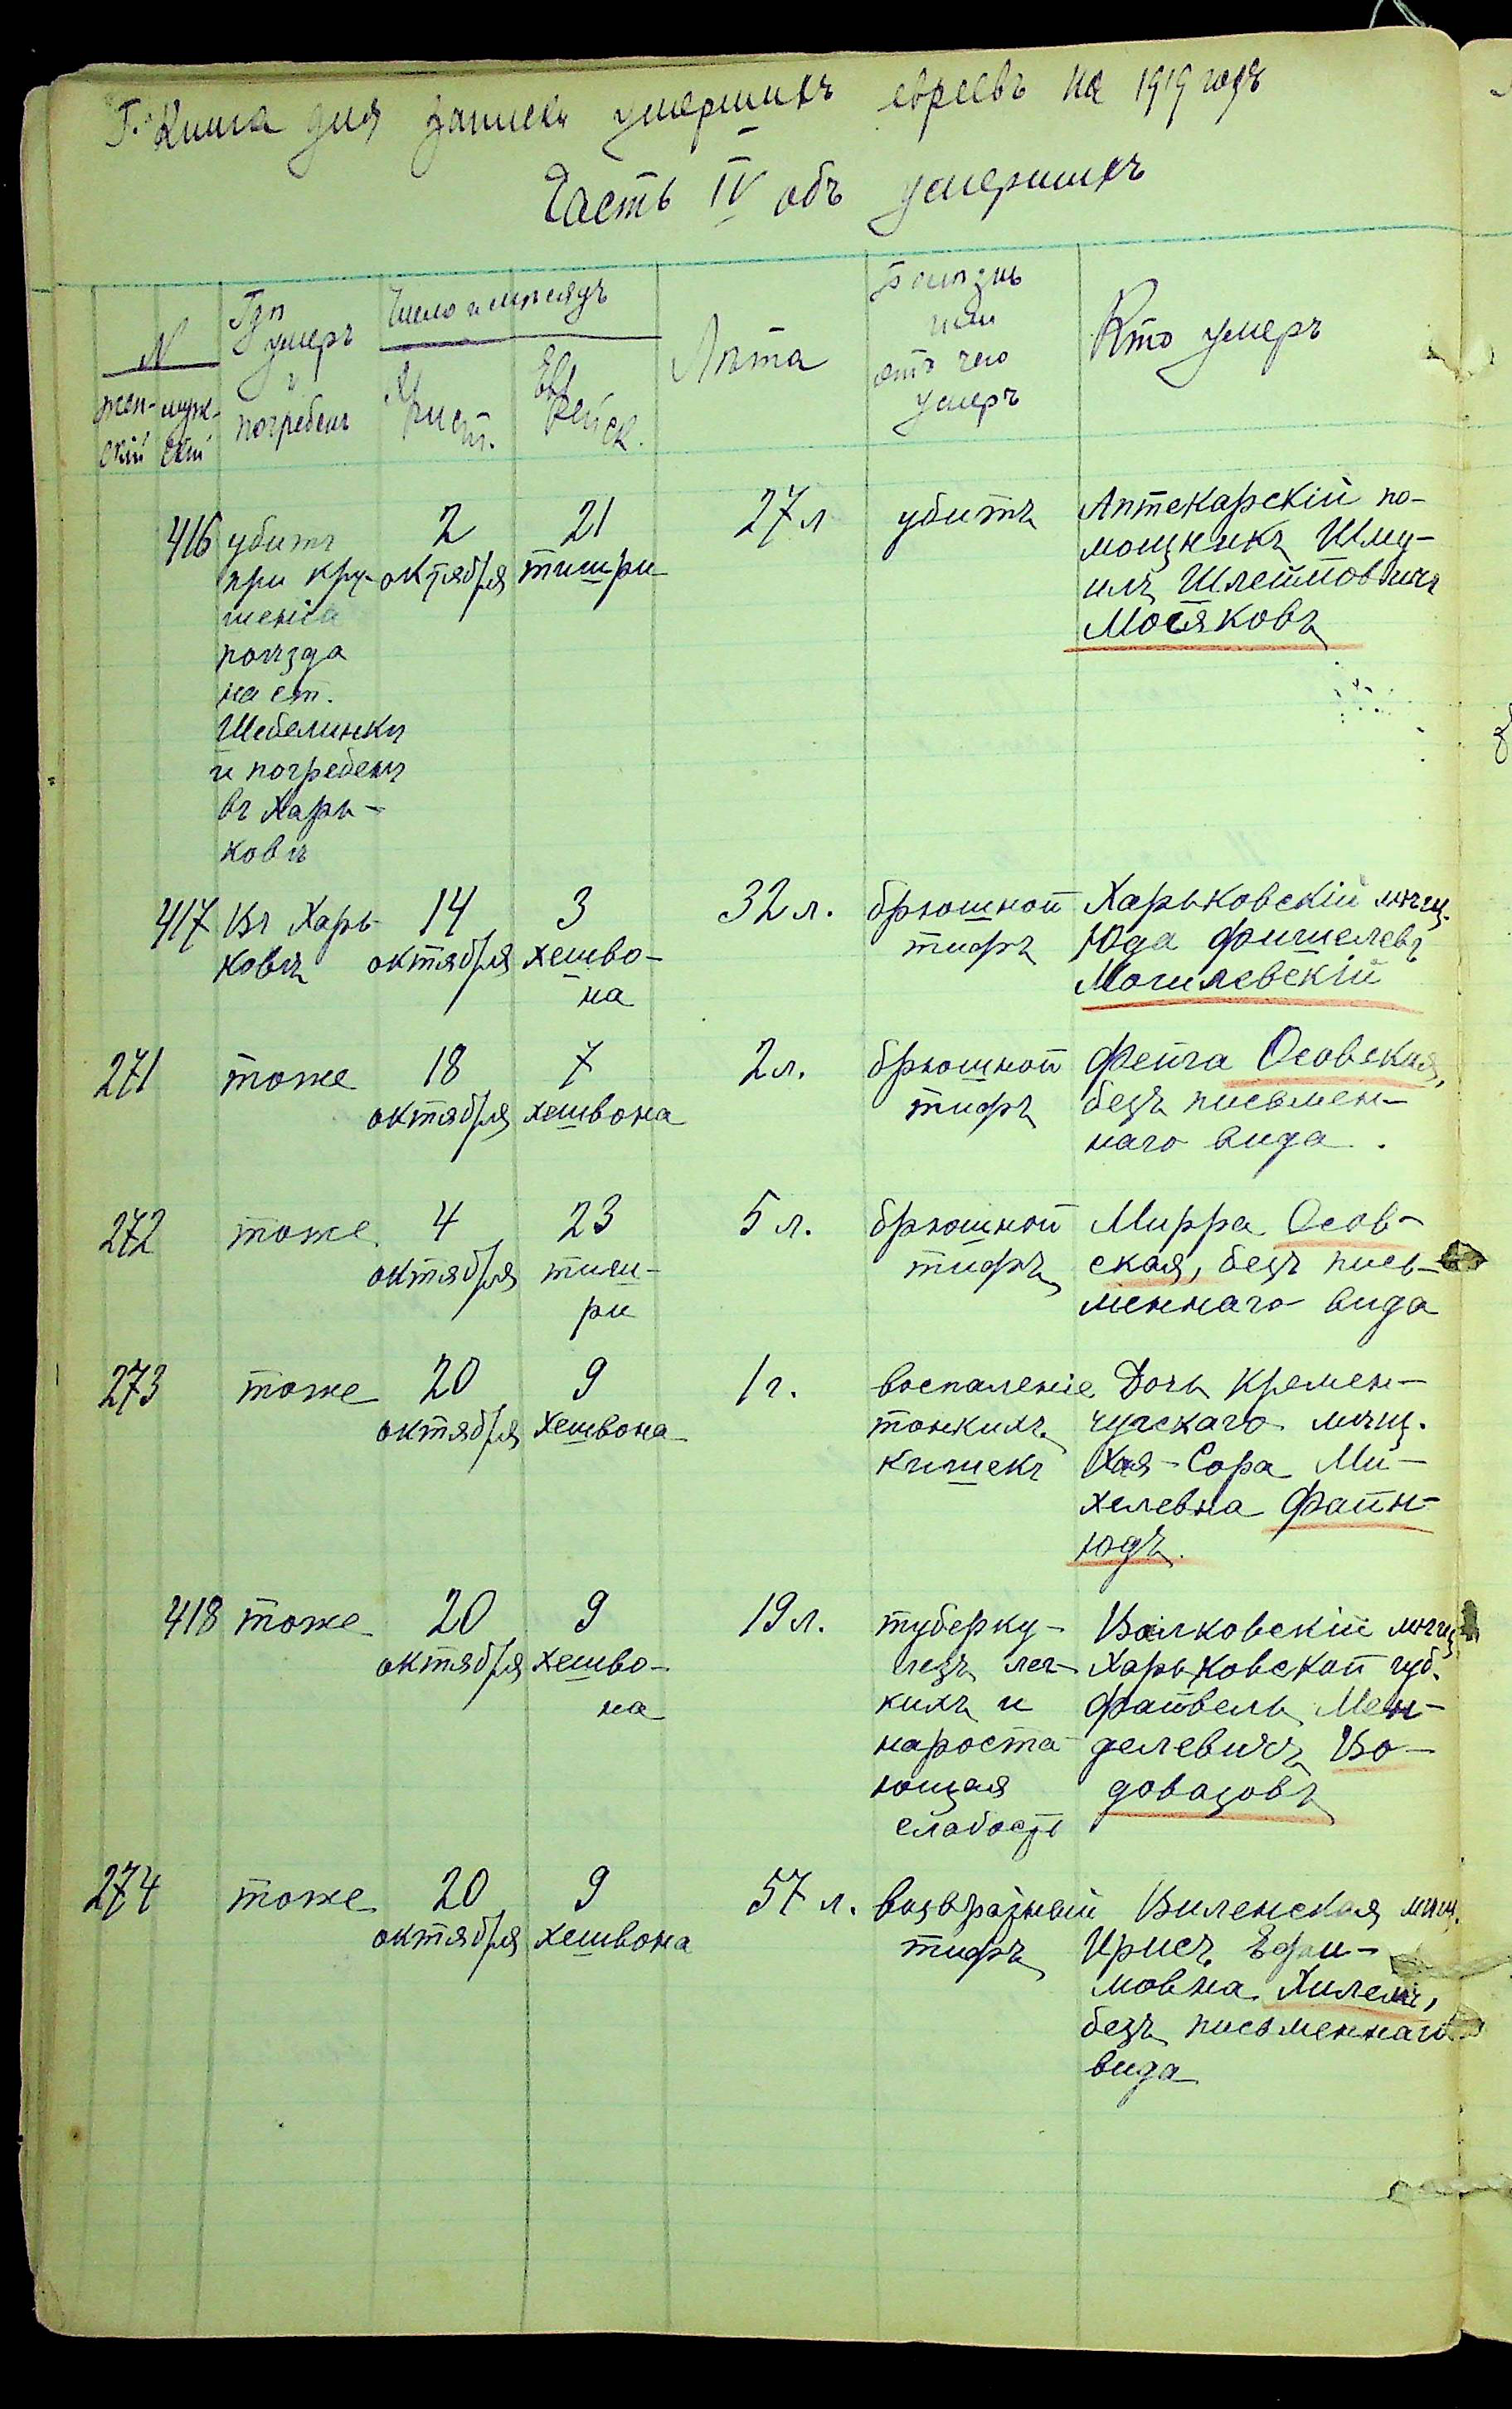 Г. Книга для записки умершихъ евреевъ на 1919 годъ
Часть IV объ умершихъ
N
жен-
скій
муж-
скій
Гдѣ
умеръ
и
погребенъ
Число и мѣсяцъ
Христ.
Еврейск.
Лѣта
Болѣзнь
или
отъ чего
умеръ
Кто умеръ
416
убитъ
при кру-
шеніи
поѣзда
на ст.
Шебелинкѣ
и погребенъ
въ Харь-
ковѣ
2
октября
21
тишри
27 л
убитъ
Аптекарскій по-
мощникъ Шму-
илъ Шлеймовичъ
Мосяковъ
417
Въ Харь-
ковѣ
14
октября
3
хешво-
на
32 л.
брюшной
тифъ
Харьковскій мѣщ.
Юда Фишелевъ
Могилевскій
271
тоже
18
октября
7
хешвона
2 л.
брюшной
тифъ
Фейга Осовская,
безъ письмен-
наго вида.
272
тоже
4
октября
23
тиш-
ри
5 л.
брюшной
тифъ
Мирра Осов-
ская, безъ пись-
меннаго вида
273
тоже
20
октября
9
хешвона
1 г.
воспаленіе
тонкихъ
кишекъ
Дочь Кремен-
чугскаго мѣщ.
Хая-Сора Ми-
хелевна Файн-
юдъ.
418
тоже
20
октября
9
хешво-
на
19 л.
туберку-
лезъ лег-
кихъ и
нароста-
ющая
слабость
Валковскій мѣщ.
Харьковской губ.
Файвель Мен-
делевичъ Во-
довазовъ
274
тоже
20
октября
9
хешвона
57 л.
возвратный
тифъ
Виленская мѣщ.
Ирисъ Ефи-
мовна Хилемъ,
безъ письменнаго
вида